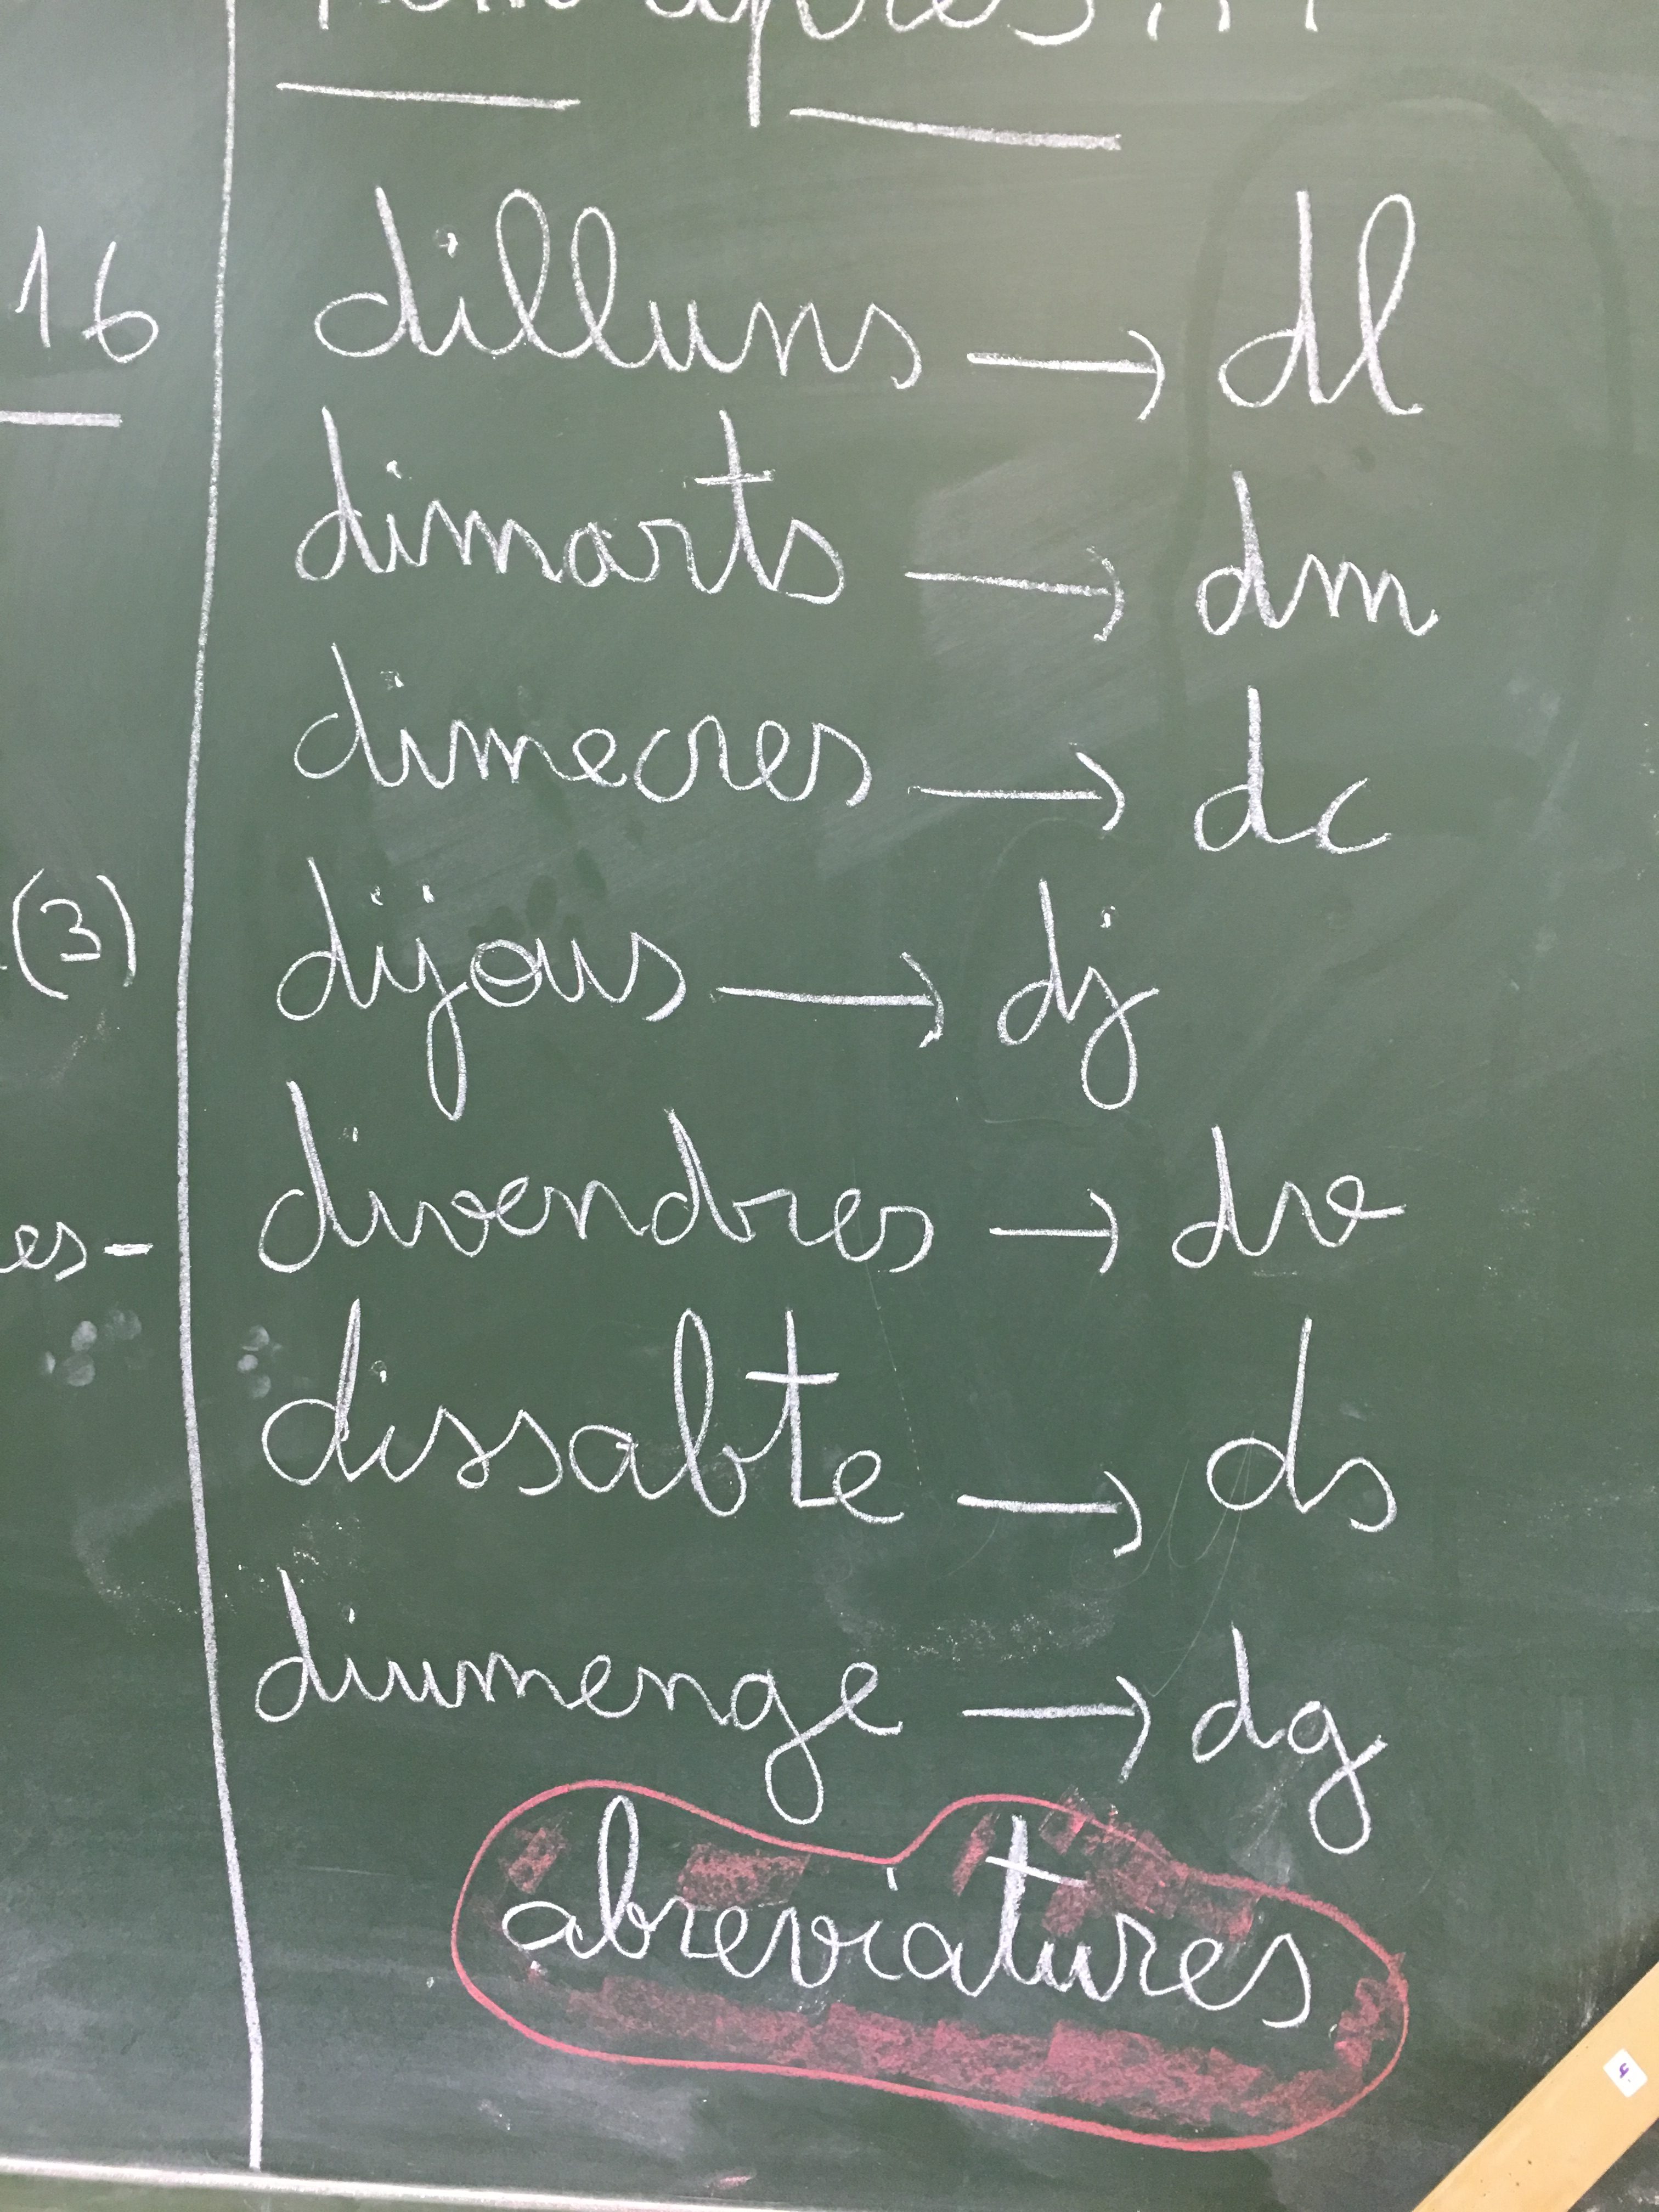 après...
16
dilluns → dl
dimarts → dm
dimecres → dc
(3)
dijous → dj
es-
divendres → dv
dissabte → ds
diumenge → dg
abreviatures